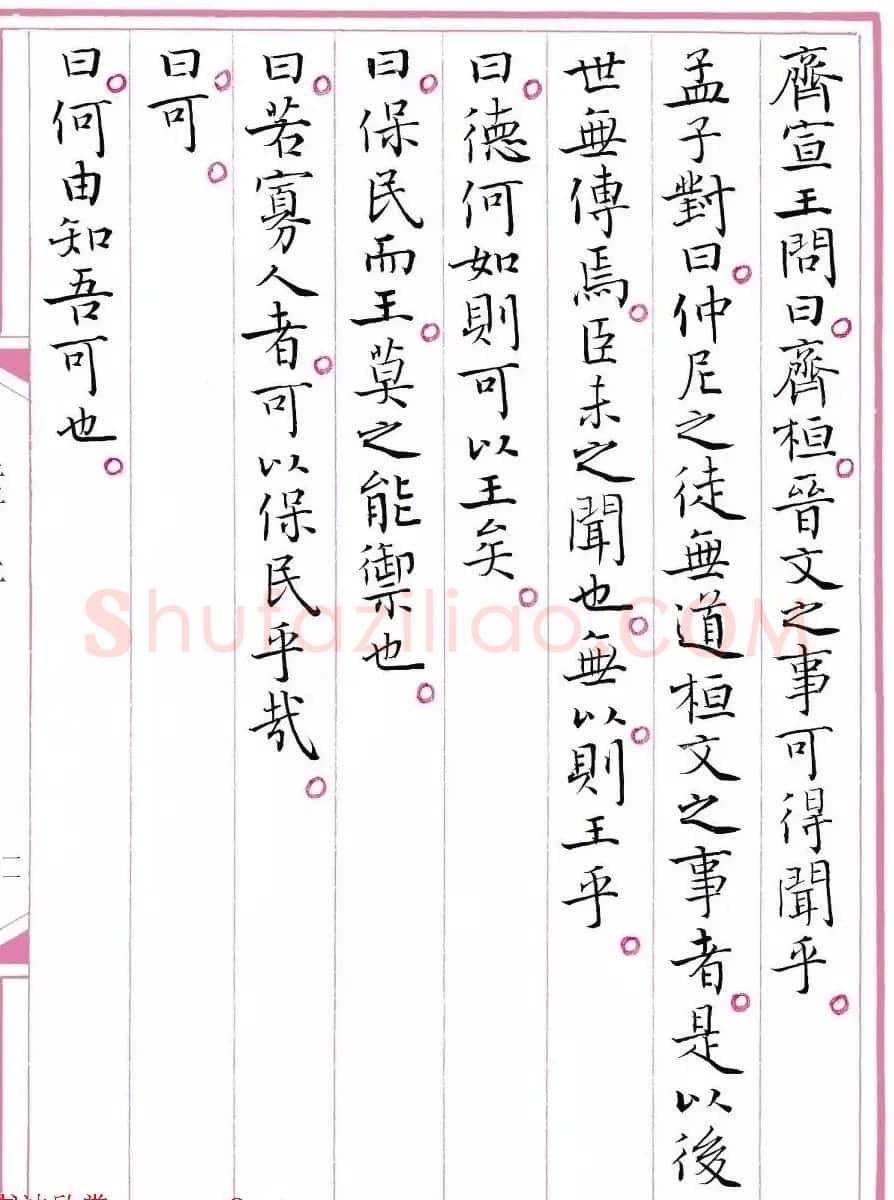 齊宣王問曰。齊桓。晉文之事可得聞乎。
孟子對曰。仲尼之徒無道桓文之事者。是以後
世無傳焉。臣未之聞也。無以。則王乎。
曰。德何如則可以王矣。
曰。保民而王。莫之能禦也。
曰。若寡人者。可以保民乎哉。
曰。可。
曰。何由知吾可也。
二
Shufaziliao.COM